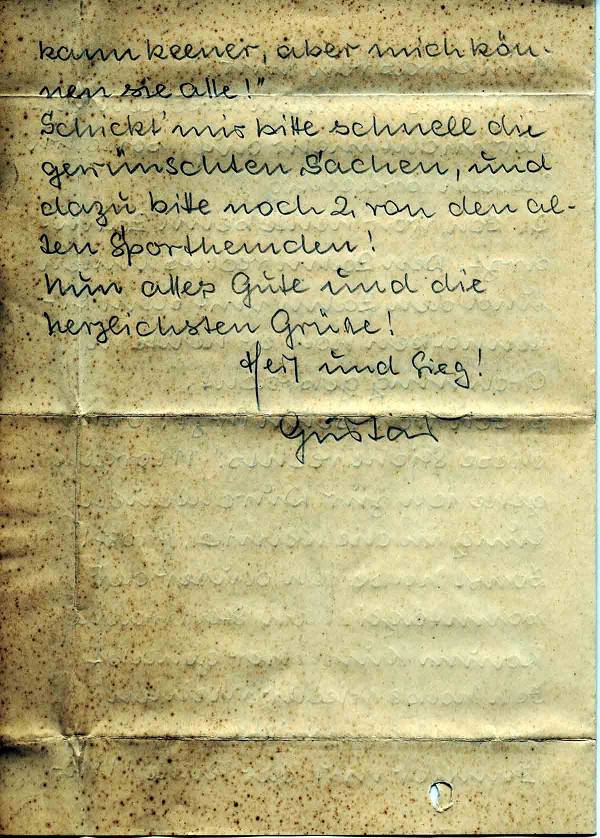 kann keener, aber mich kön-
nen sie alle!"
Schickt mir bitte schnell die
gewünschten Sachen, und
dazu bitte noch 2 von den al-
ten Sporthemden!
Nun alles Gute und die
herzlichsten Grüße!
Heil und Sieg!
Gustav